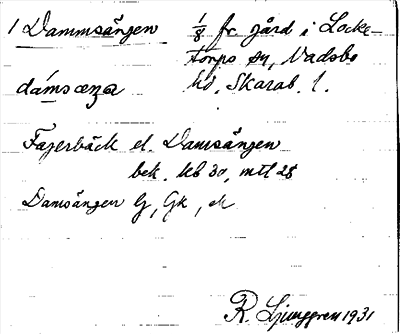 1 Dammsängen 1/8 fr. gård i Locke-
torps sn, Vadsbo
dámsæŋa hd, Skarab. l.
Fagerbäck el. Damsängen
bek. kb 30, mtl 28
Damsängen G, Gk,
R. Ljunggren 1931